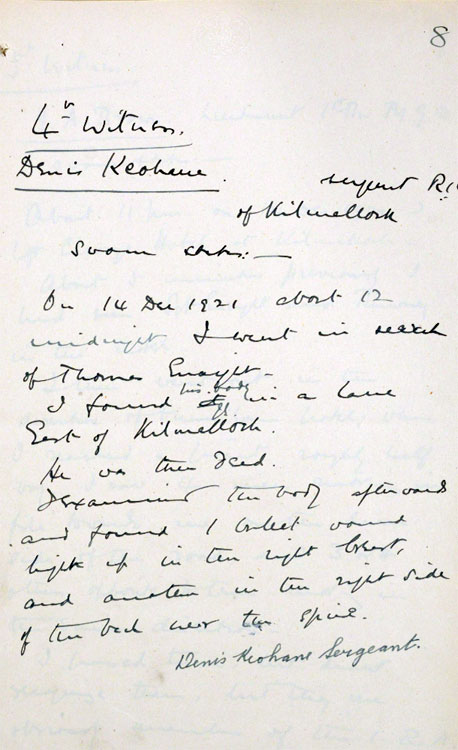 8
4th Witness.
Denis Keohane. sergeant R.I.C
of Kilmallock
Sworn states:—
On 14 Dec 1921 about 12
midnight I went in search
of Thomas Enright.
I found his body in a lane
East of Kilmallock.
He was then dead.
I examined the body afterwards
and found 1 bullet wound
high up in the right breast,
and another in the right side
of the back near the spine.
Denis Keohane Sergeant.